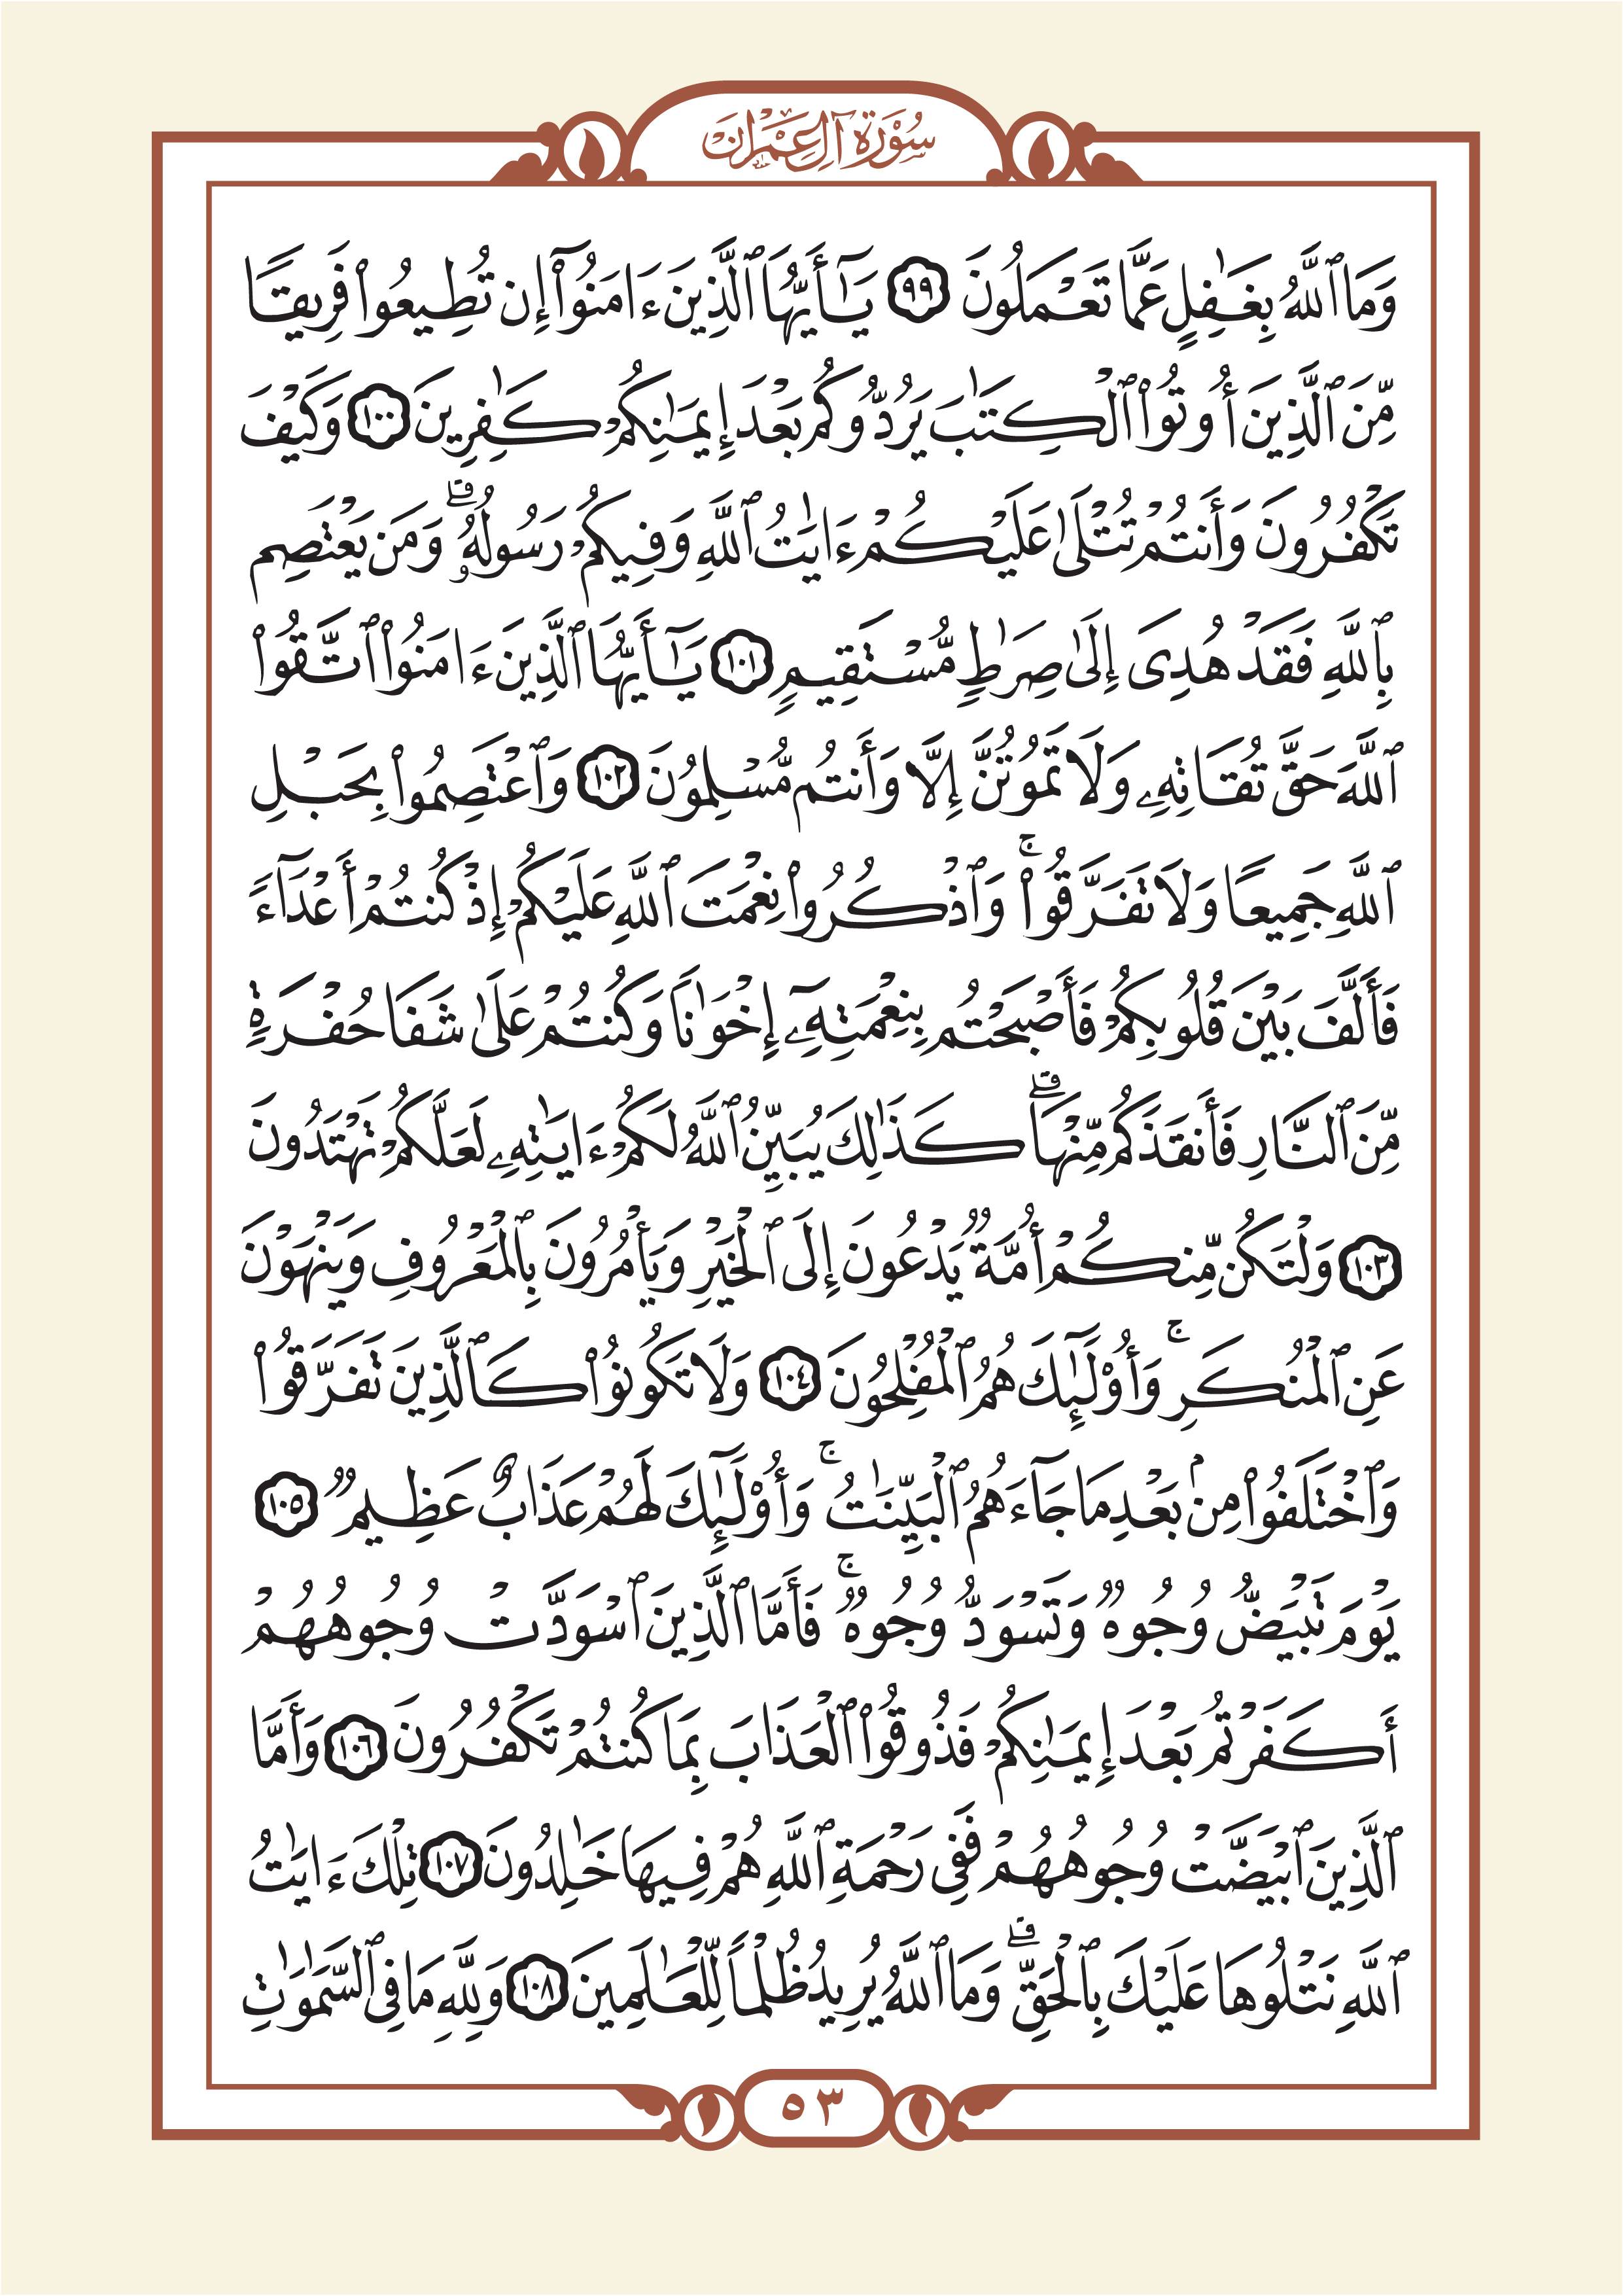 سُورَةُ آلِ عِمْرَانَ
وَمَا ٱللَّهُ بِغَٰفِلٍ عَمَّا تَعْمَلُونَ ٩٩ يَٰٓأَيُّهَا ٱلَّذِينَ ءَامَنُوٓا۟ إِن تُطِيعُوا۟ فَرِيقًا
مِّنَ ٱلَّذِينَ أُوتُوا۟ ٱلْكِتَٰبَ يَرُدُّوكُم بَعْدَ إِيمَٰنِكُمْ كَٰفِرِينَ ١٠٠ وَكَيْفَ
تَكْفُرُونَ وَأَنتُمْ تُتْلَىٰ عَلَيْكُمْ ءَايَٰتُ ٱللَّهِ وَفِيكُمْ رَسُولُهُۥ ۗ وَمَن يَعْتَصِم
بِٱللَّهِ فَقَدْ هُدِىَ إِلَىٰ صِرَٰطٍ مُّسْتَقِيمٍ ١٠١ يَٰٓأَيُّهَا ٱلَّذِينَ ءَامَنُوا۟ ٱتَّقُوا۟
ٱللَّهَ حَقَّ تُقَاتِهِۦ وَلَا تَمُوتُنَّ إِلَّا وَأَنتُم مُّسْلِمُونَ ١٠٢ وَٱعْتَصِمُوا۟ بِحَبْلِ
ٱللَّهِ جَمِيعًا وَلَا تَفَرَّقُوا۟ ۚ وَٱذْكُرُوا۟ نِعْمَتَ ٱللَّهِ عَلَيْكُمْ إِذْ كُنتُمْ أَعْدَآءً
فَأَلَّفَ بَيْنَ قُلُوبِكُمْ فَأَصْبَحْتُم بِنِعْمَتِهِۦٓ إِخْوَٰنًا وَكُنتُمْ عَلَىٰ شَفَا حُفْرَةٍ
مِّنَ ٱلنَّارِ فَأَنقَذَكُم مِّنْهَا ۗ كَذَٰلِكَ يُبَيِّنُ ٱللَّهُ لَكُمْ ءَايَٰتِهِۦ لَعَلَّكُمْ تَهْتَدُونَ
١٠٣ وَلْتَكُن مِّنكُمْ أُمَّةٌ يَدْعُونَ إِلَى ٱلْخَيْرِ وَيَأْمُرُونَ بِٱلْمَعْرُوفِ وَيَنْهَوْنَ
عَنِ ٱلْمُنكَرِ ۚ وَأُو۟لَٰٓئِكَ هُمُ ٱلْمُفْلِحُونَ ١٠٤ وَلَا تَكُونُوا۟ كَٱلَّذِينَ تَفَرَّقُوا۟
وَٱخْتَلَفُوا۟ مِنۢ بَعْدِ مَا جَآءَهُمُ ٱلْبَيِّنَٰتُ ۚ وَأُو۟لَٰٓئِكَ لَهُمْ عَذَابٌ عَظِيمٌ ١٠٥
يَوْمَ تَبْيَضُّ وُجُوهٌ وَتَسْوَدُّ وُجُوهٌ ۚ فَأَمَّا ٱلَّذِينَ ٱسْوَدَّتْ وُجُوهُهُمْ
أَكَفَرْتُم بَعْدَ إِيمَٰنِكُمْ فَذُوقُوا۟ ٱلْعَذَابَ بِمَا كُنتُمْ تَكْفُرُونَ ١٠٦ وَأَمَّا
ٱلَّذِينَ ٱبْيَضَّتْ وُجُوهُهُمْ فَفِى رَحْمَةِ ٱللَّهِ هُمْ فِيهَا خَٰلِدُونَ ١٠٧ تِلْكَ ءَايَٰتُ
ٱللَّهِ نَتْلُوهَا عَلَيْكَ بِٱلْحَقِّ ۗ وَمَا ٱللَّهُ يُرِيدُ ظُلْمًا لِّلْعَٰلَمِينَ ١٠٨ وَلِلَّهِ مَا فِى ٱلسَّمَٰوَٰتِ
٥٣